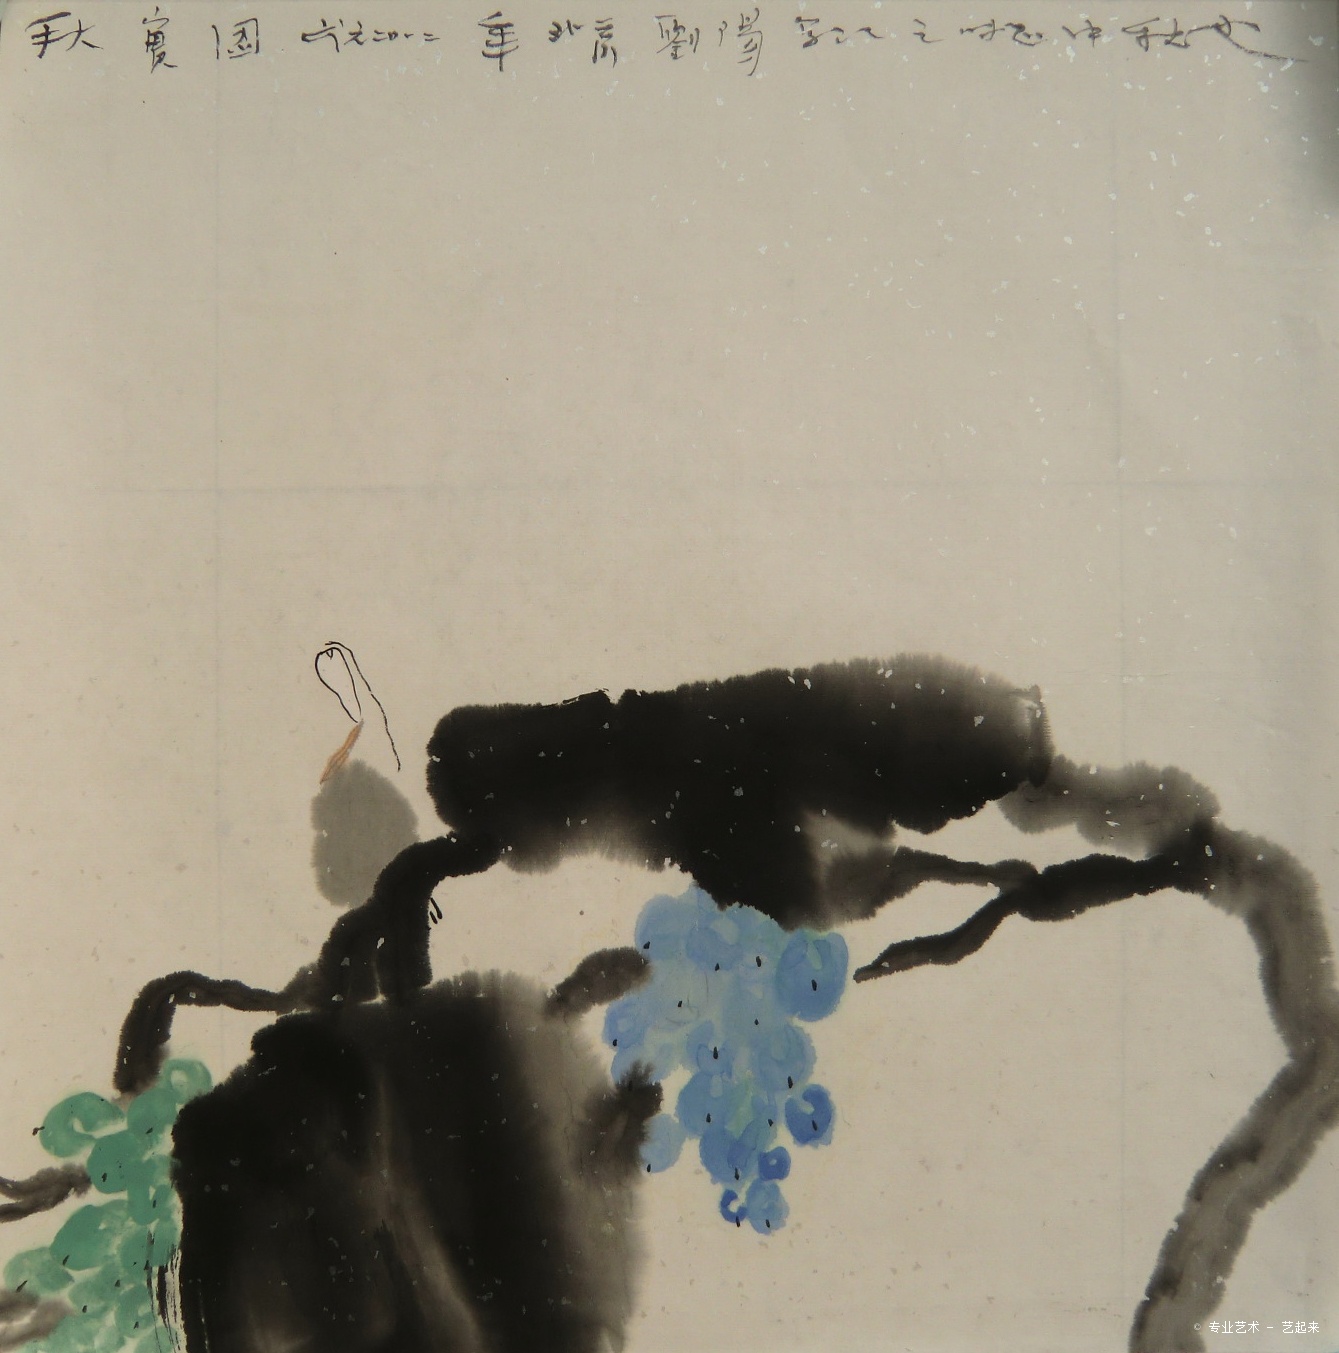 秋實圖 公元二〇一二年 北京 劉陽 寫 之 時 中秋也
© 专业艺术 - 艺起来